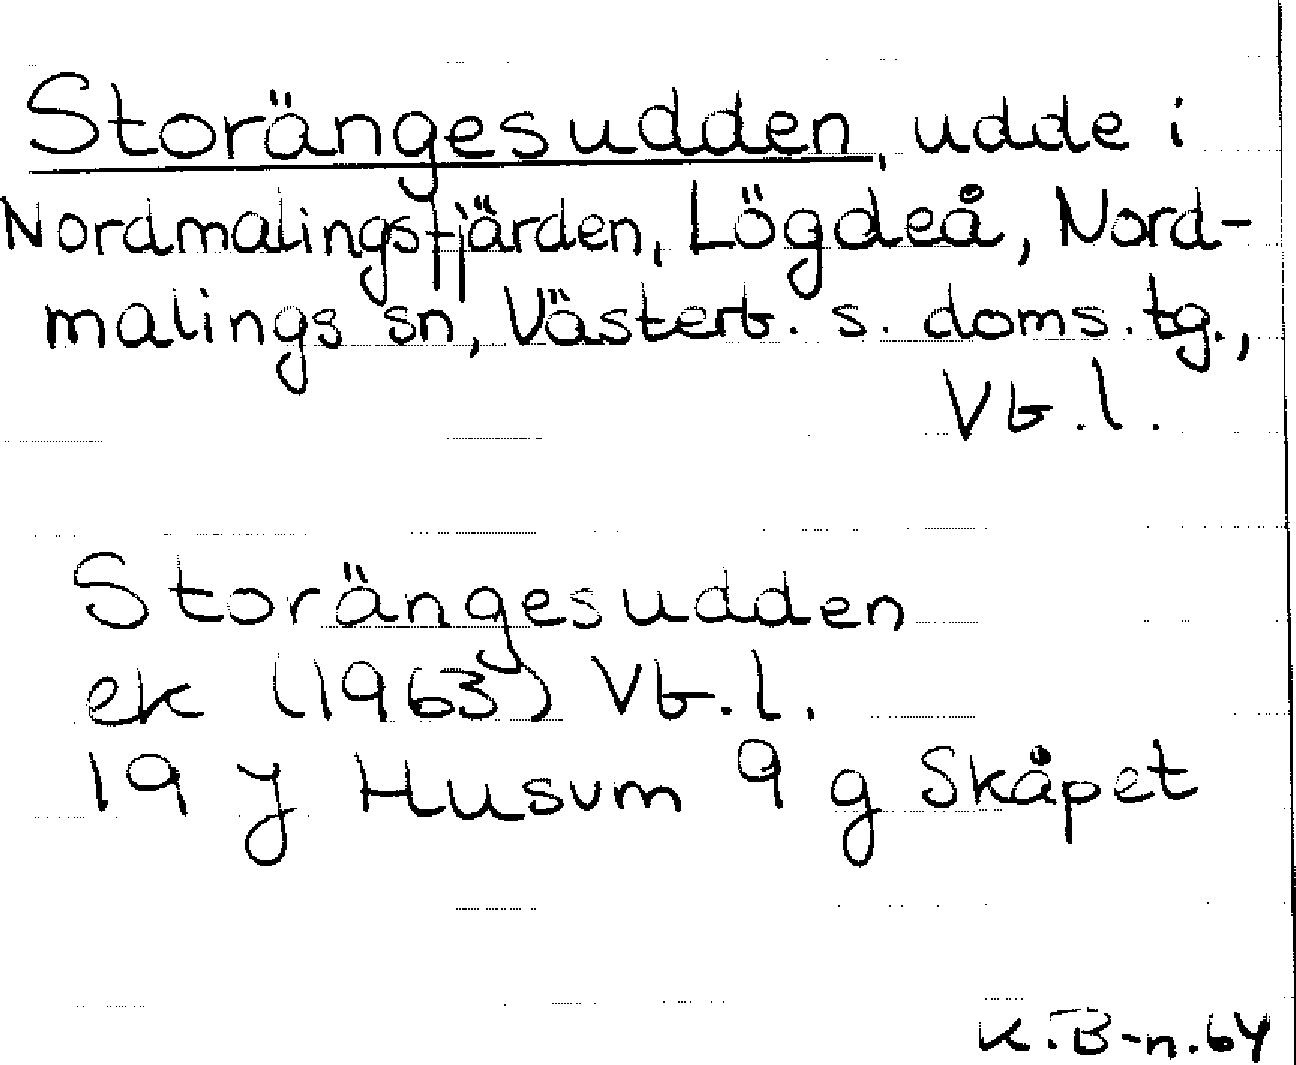 Storängesudden, udde i
Nordmalingsfjärden, Lögdeå, Nord-
malings sn, Västerb. s. doms. tg.,
Vb. l.
Storängesudden
ek (1963) Vb. l.
19 J Husum 9 g Skåpet
K. B-n. 64